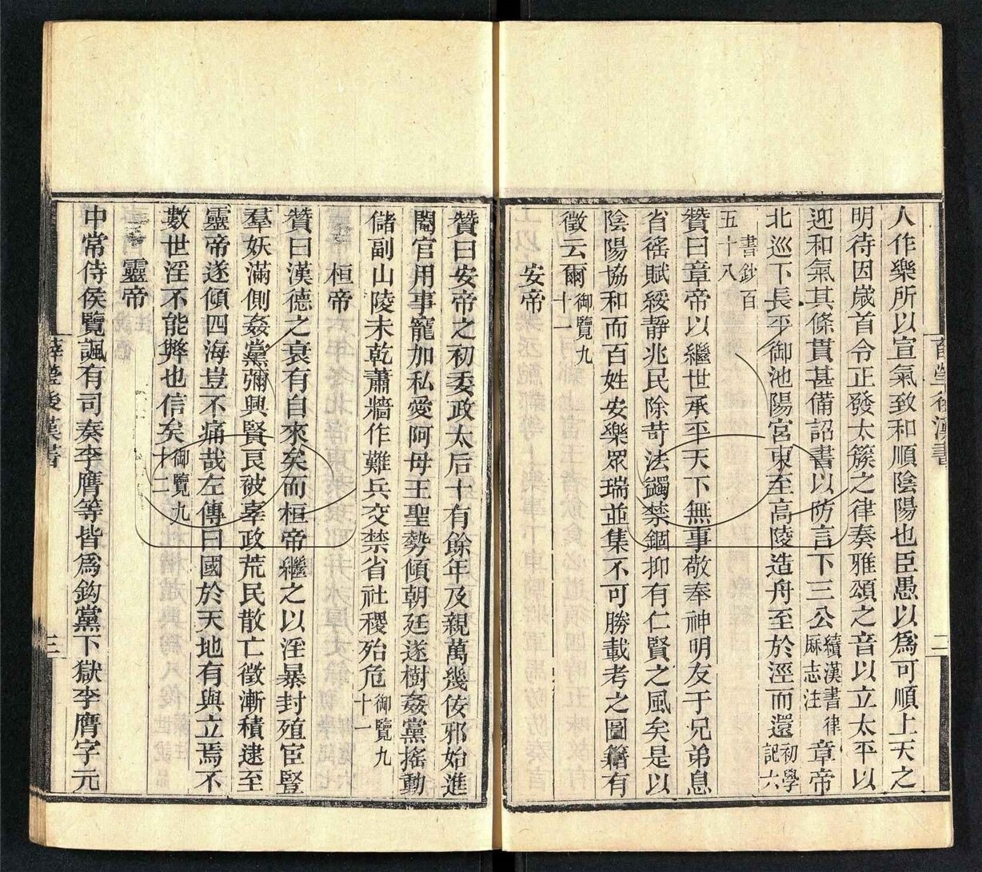 人作樂所以宣氣致和順陰陽也臣愚以爲可順上天之
明待因歲首令正發太簇之律奏雅頌之音以立太平以
迎和氣其條貫甚備詔書以防言下三公續漢書律麻志注章帝
北巡下長平御池陽宮東至高陵造舟至於涇而還初學記六
書鈔百五十八
贊曰章帝以繼世承平天下無事敬奉神明友于兄弟息
省徭賦綏靜兆民除苛法蠲禁錮抑有仁賢之風矣是以
陰陽協和而百姓安樂眾瑞並集不可勝載考之圖籍有
徵云爾御覽九十一
安帝
贊曰安帝之初委政太后十有餘年及親萬幾佞邪始進
閹官用事寵加私愛阿母王聖勢傾朝廷遂樹姦黨搖動
儲副山陵未乾蕭牆作難兵交禁省社稷殆危御覽九十一
桓帝
贊曰漢德之衰有自來矣而桓帝繼之以淫暴封殖宦豎
羣妖滿側姦黨彌興賢良被辜政荒民散亡徵漸積逮至
靈帝遂傾四海豈不痛哉左傳曰國於天地有與立焉不
數世淫不能弊也信矣御覽九十二
靈帝
中常侍侯覽諷有司奏李膺等皆爲鈎黨下獄李膺字元
薛瑩後漢書
三